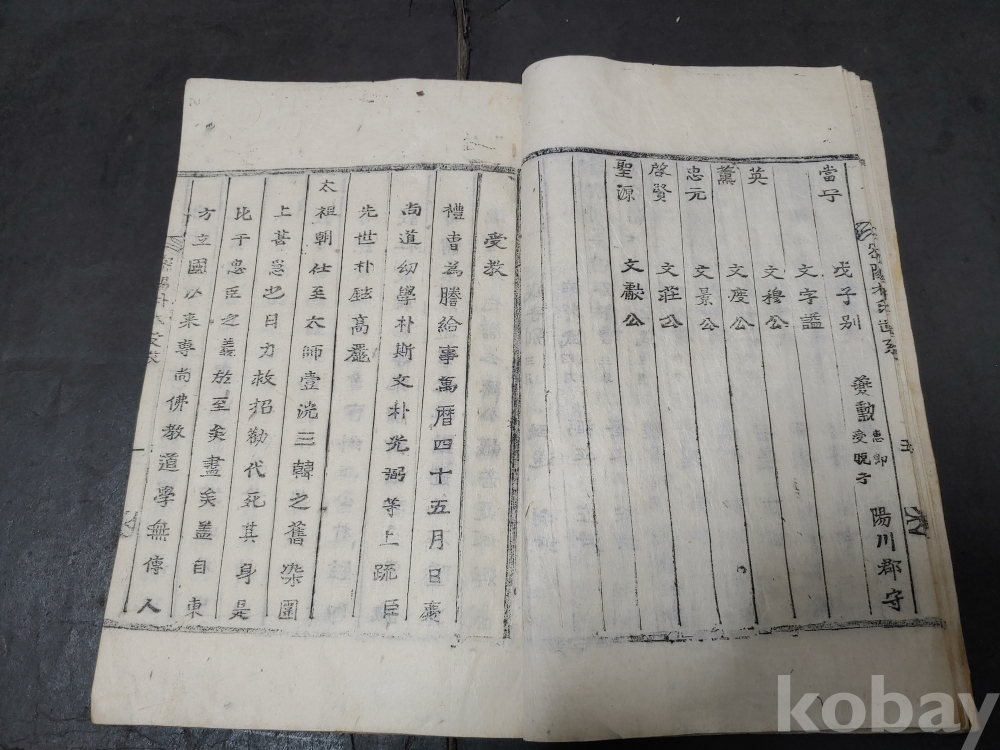 夔勳
陽川郡守
當子
戊子別
文字諡
文穆公
英
文度公
薰
文景公
忠元
文莊公
啓賢
文獻公
聖源
受教
禮曹為謄給事萬曆四十五月日慶
尚道幼學朴斯文朴光弼等上疏臣
先世朴鉉高麗
太祖朝仕至太師壹洗三韓之舊染圍
上甚急忠臣力救招勸代死其身是
比干忠臣之義於至矣盡矣盖自東
方立國以来專尚佛教道學無傳人
kobay